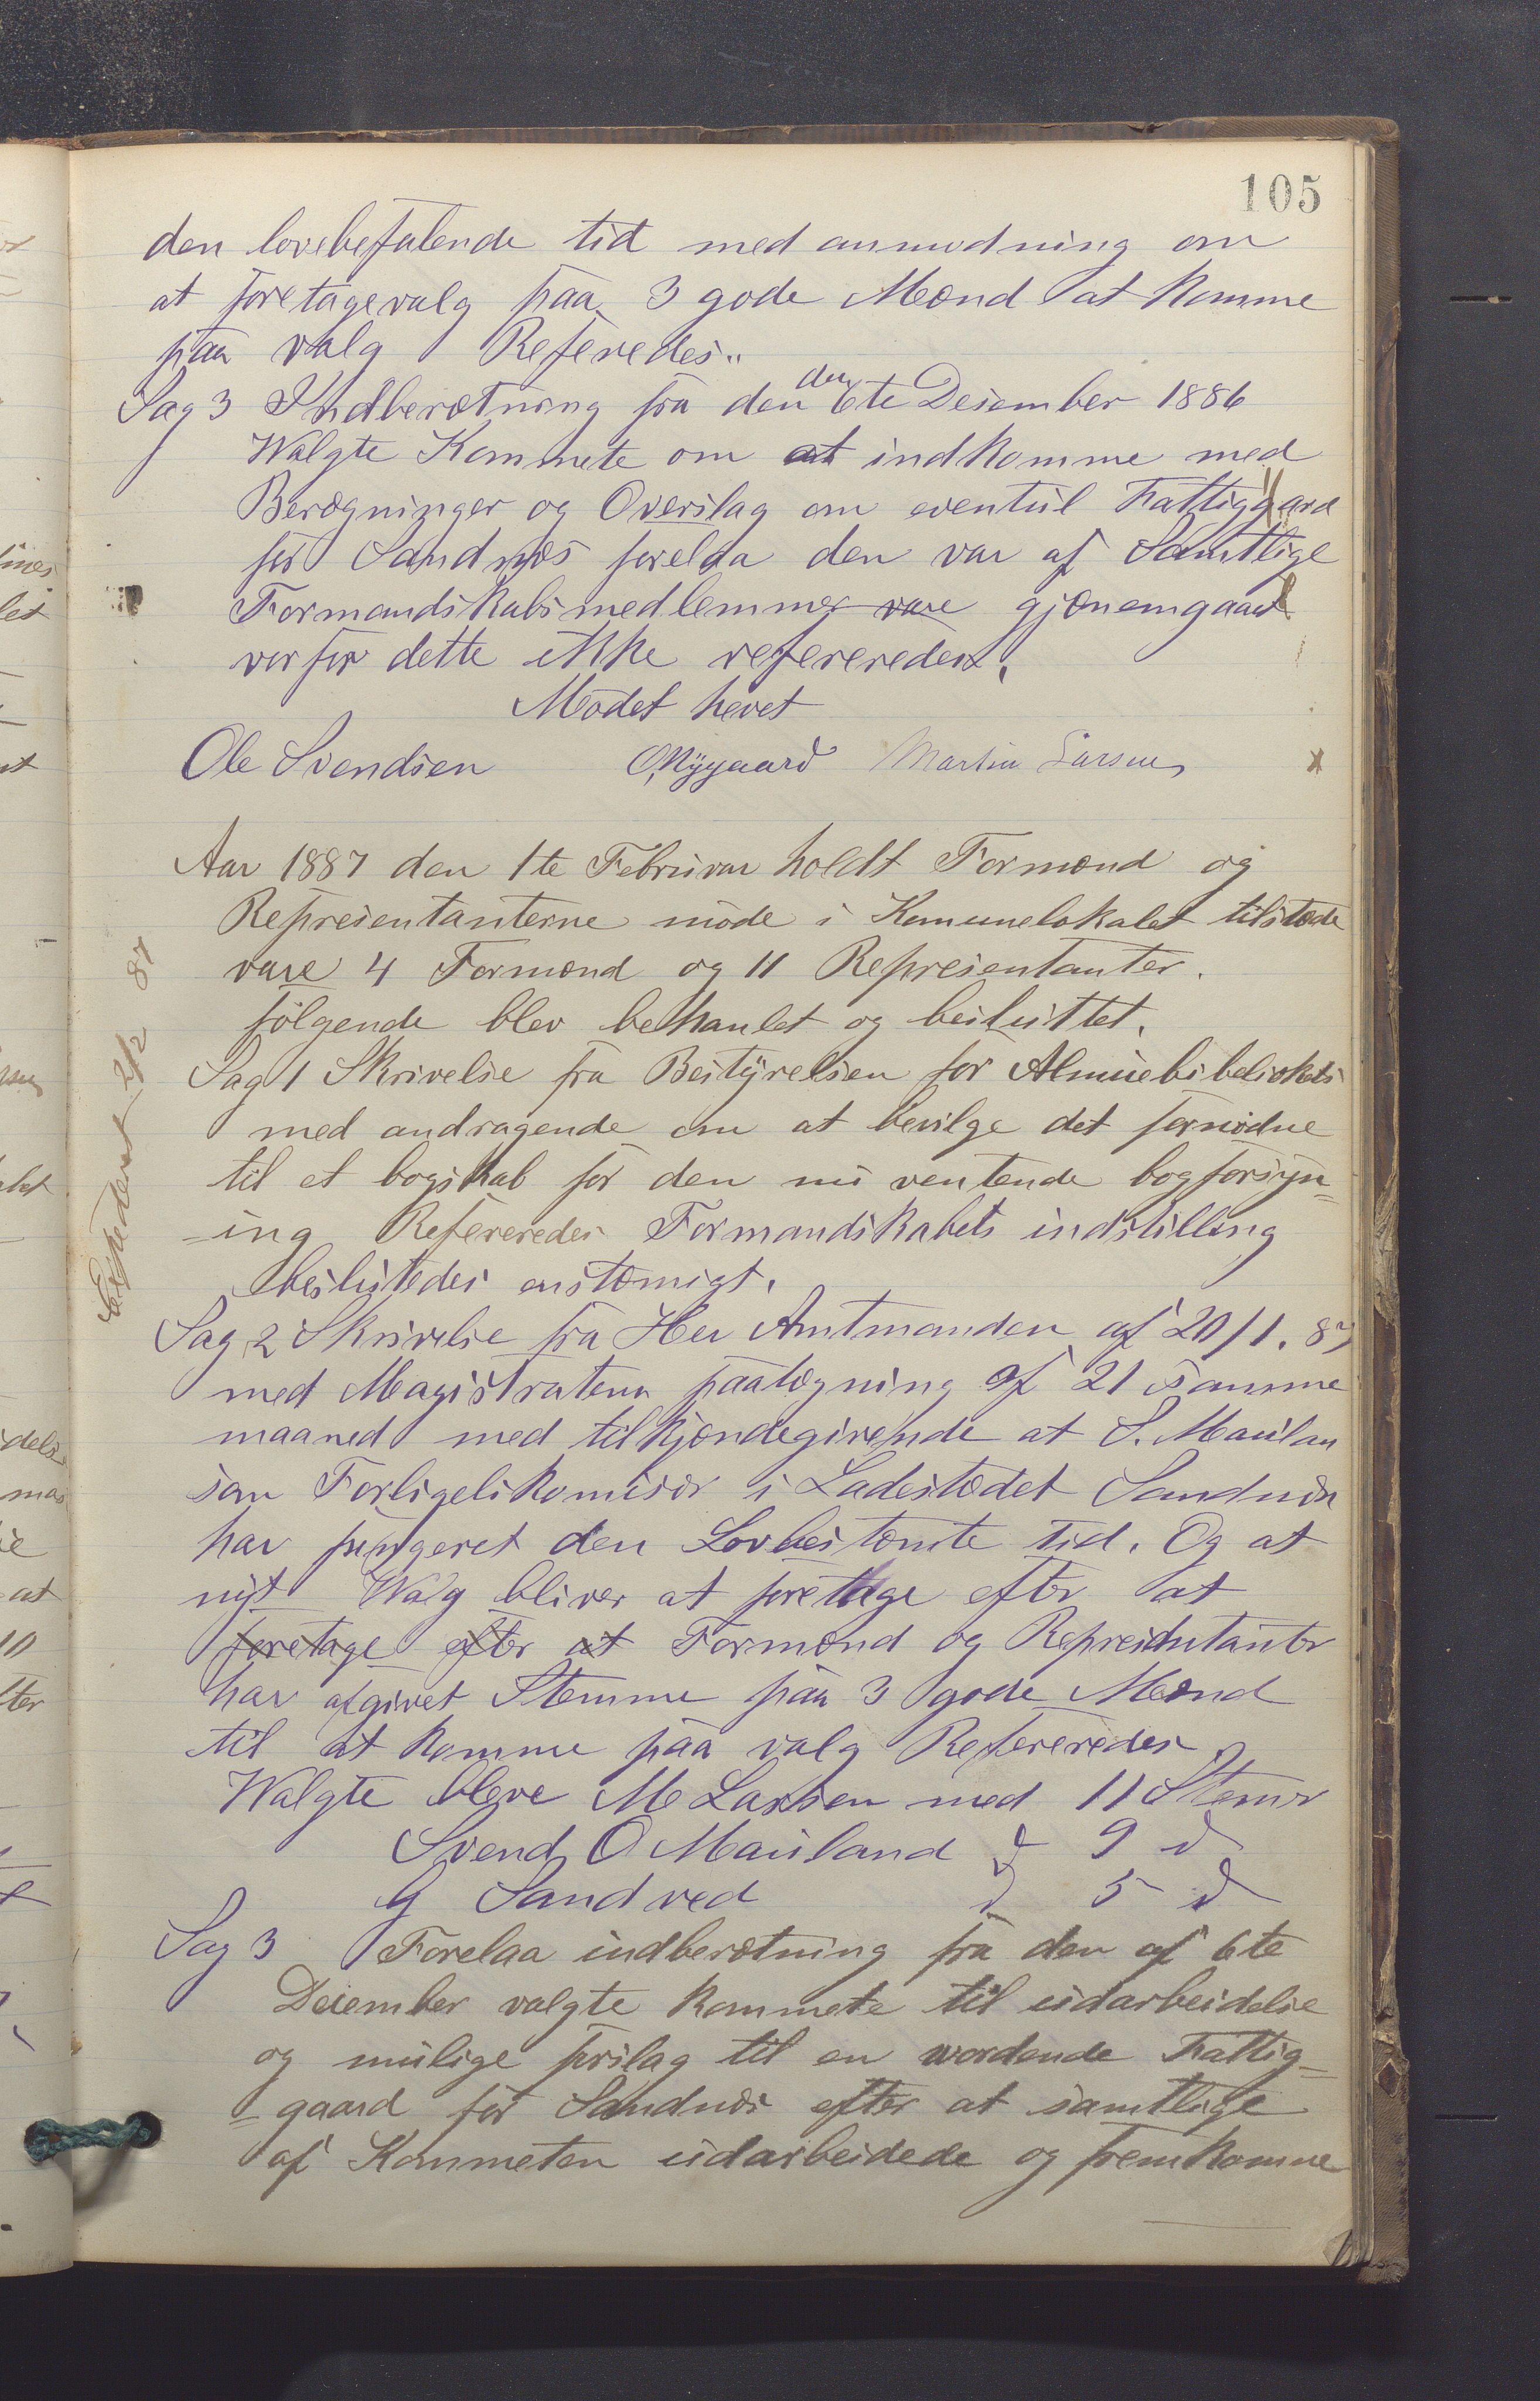 105
den lovebefalende tid med anmodning om
at foretagevalg paa 3 gode Mænd at komme
paa valg Referedes..
Sag 3 Indberætning fra den den 6te Desember 1886
Walgte Kommete om at indkomme med
Berægninger og Overslag om eventuel Fattiggaard
for Sandnæs forelaa den var af Samtlige
Formandskabsmedlemmer vare gjænemgaaet
vorfor dette ikke refereredes.
Mødet hevet
Ole Svendsen ONygaard Martin Larsen
Aar 1887 den 1te Februar holdt Formænd og
Represientanterne møde i Komunelokalet tilstæde
vare 4 Formænd og 11 Represientanter.
følgende blev behanlet og besluttet.
Expederet 2/2 87
Sag 1 Skrivelse fra Bestyrelsen for Almuebibeliokets
med andragende om at bevilge det fornødne
til et bogskab for den nu ventende bogforsyn=
=ing Refereredes Formandskabets indstilling
beslutedes enstæmigt.
Sag 2 Skrivelse fra Her Amtmanden af 20/1. 87
med Magistratens paategning af 21 samme
maaned med tilkjændegivende at S. Maulan
som Forligelikomisær i Ladestædet Sandnæs
har fungeret den Lovbestæmte tid. Og at
nyt Walg bliver at foretage efter at
foretage efter at Formænd og Represidntanter
har afgivet Stemme paa 3 gode Mænd
til at komme paa valg Refereredes
Walgte bleve M Larsen med 11 Stemer
Svend O Mauland d 9 d
G Sandved d 5 d
Sag 3 Forelaa indberætning fra den af 6te
Desember valgte kommete til udarbeidelse
og mulige forslag til en wordende Fattig=
=gaard for Sandnæs efter at samtlige
af Kommeten udarbeidede og fremkomne